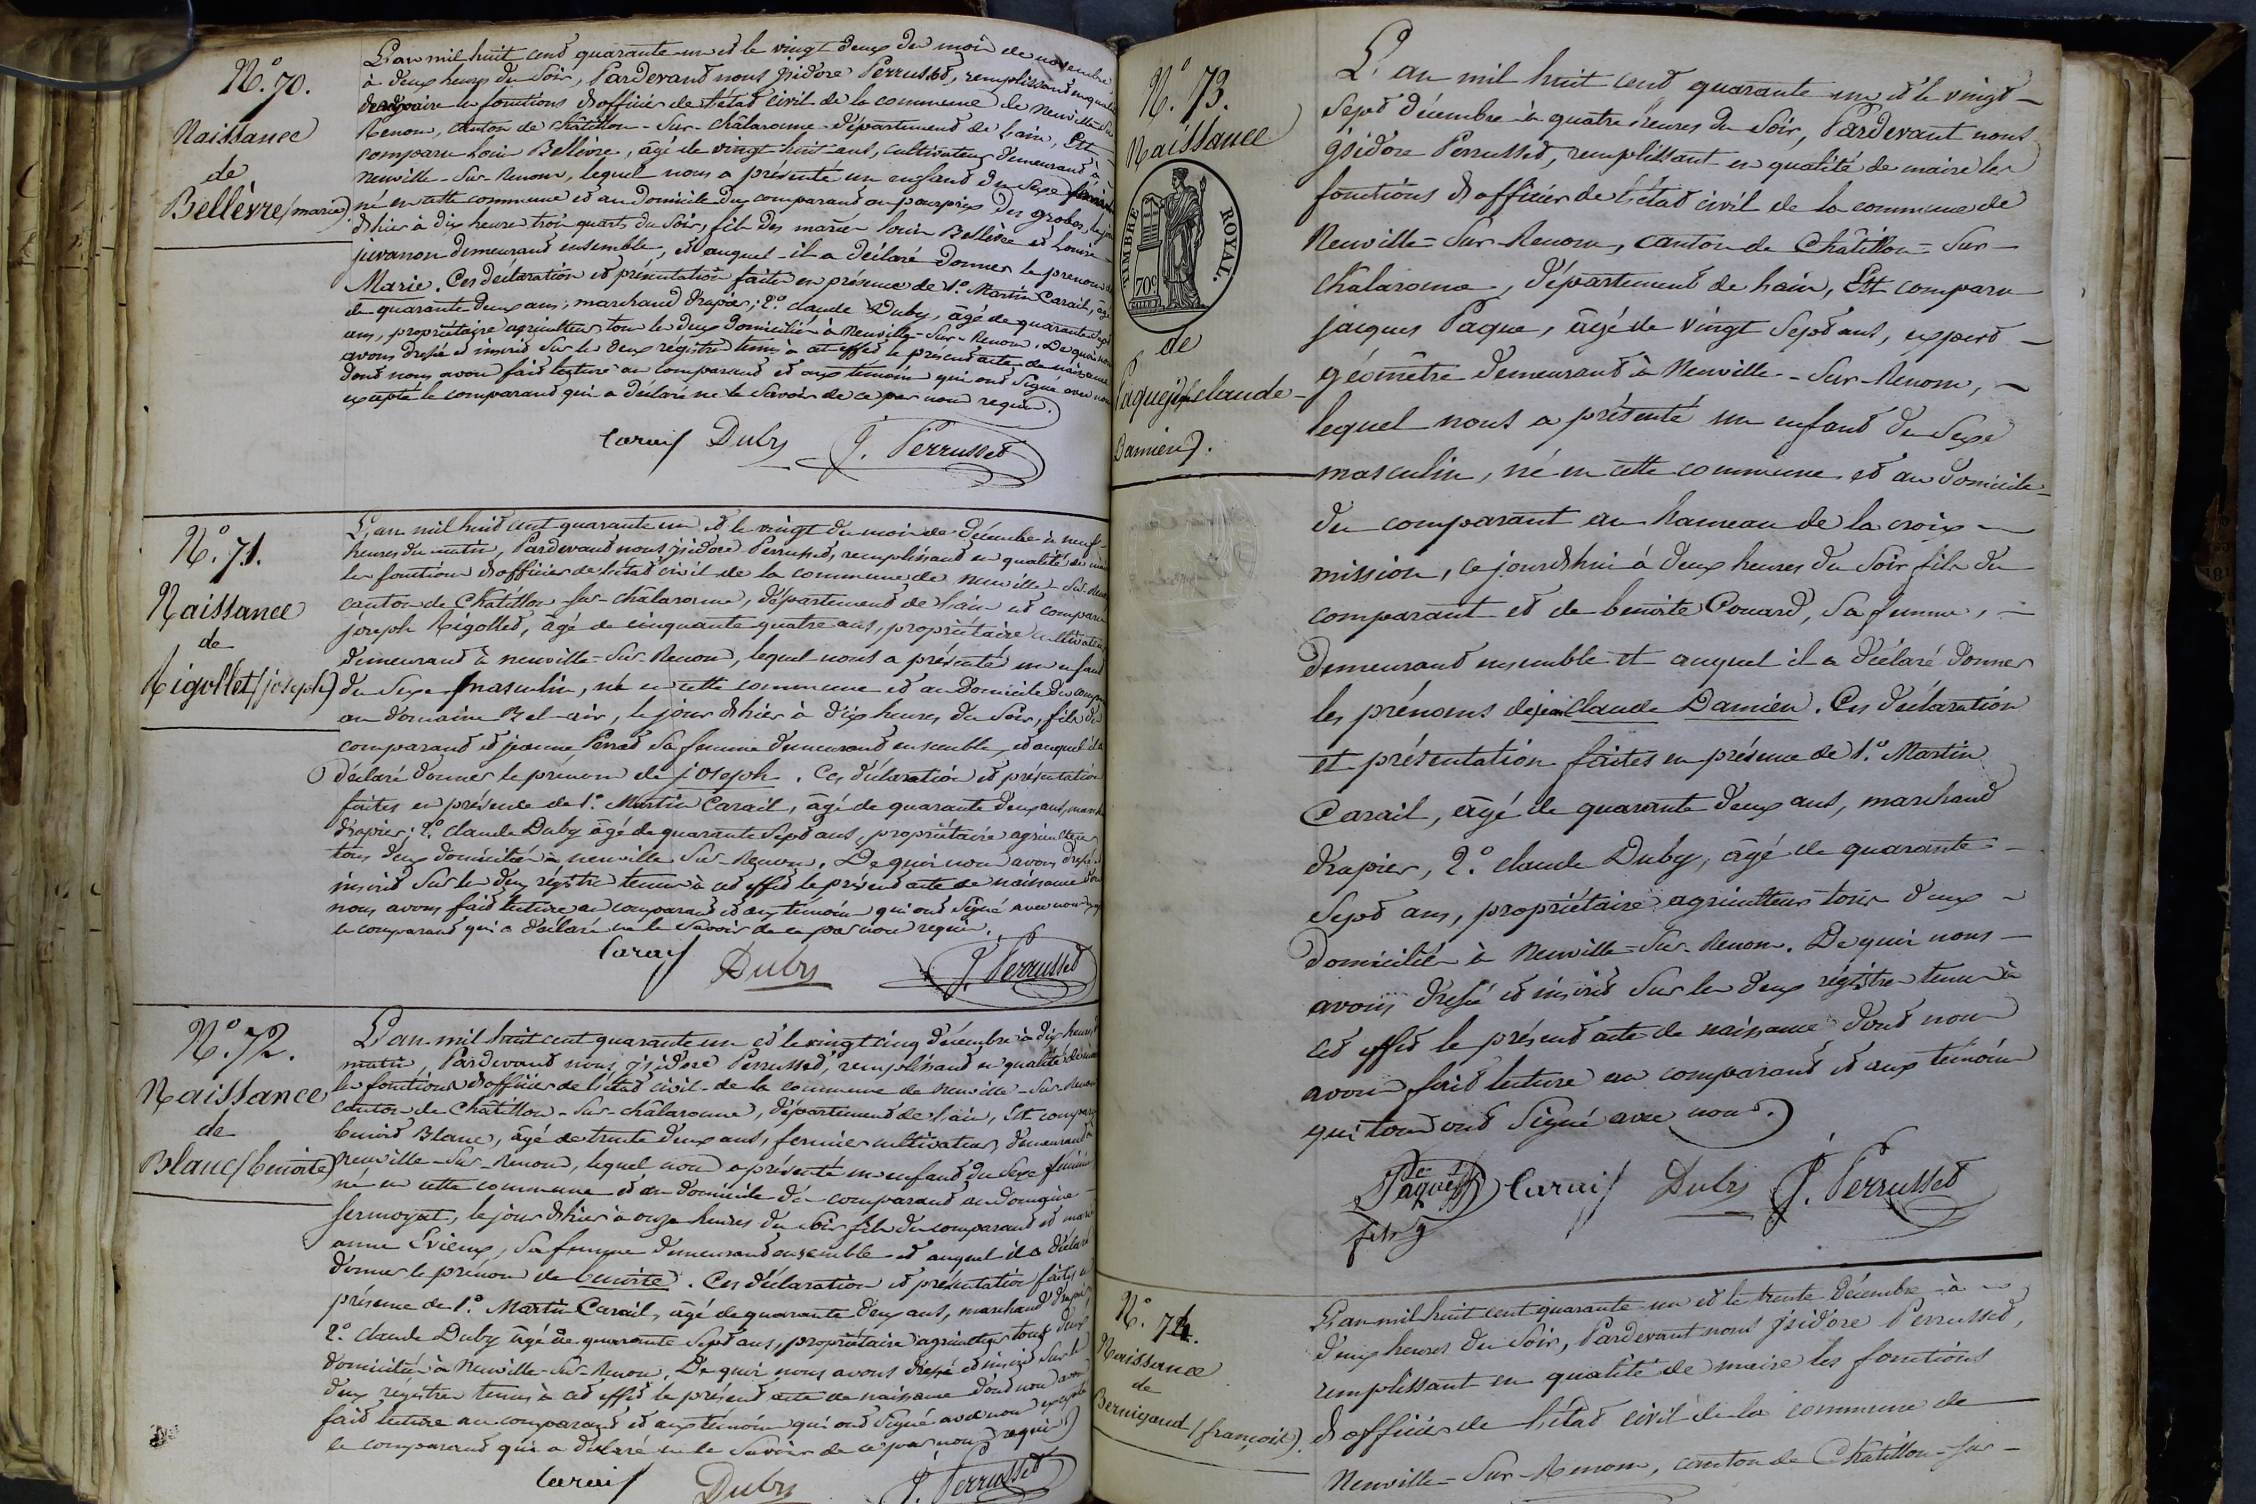 N.° 70.
Naissance
de
Bellèvre (marie)
L'an mil huit cent quarante un et le vingt deux du mois de novembre
à deux heures du soir, Pardevant nous jsidore Perrusset, remplissant en qualité
de maire les fonctions d'officier de l'état civil de la commune de Neuville-sur
Renom, canton de Châtillon-sur-châlaronne département de l'ain, Est
comparu Louis Bellèvre, âgé de vingt huit ans, cultivateur demeurant à
neuville-sur-Renom, lequel nous a présenté un enfant du sexe féminin
né en cette commune et au domicile du comparant
d'hier à dix heures trois quarts du soir, fils des mariés Louis Bellèvre et Louise
juvanon demeurant ensemble, et auquel il a déclaré donner le prenom de
Marie. Ces déclaration et présentation faites en présence de 1.° Martin Carail, âgé
de quarante deux ans, marchand drapier; 2.° claude Duby, âgé de quarante sept
ans, propriétaire agriculteur tous les deux domiciliés à Neuville-sur-Renom. De quoi nous
avons dressé et inscrit sur les deux régistres tenus à cet effet le présent acte de naissance
dont nous avons fait lecture au comparant et aux témoins qui ont signé avec nous
excepté le comparant qui a déclaré ne le savoir de ce par nous requis.
Carail Duby J. Perrusset
N.° 71.
Naissance
de
Rigollet (joseph)
L'an mil huit cent quarante un et le vingt du mois de décembre à neuf
heures du matin, Pardevant nous jsidore Perrusset, remplissant en qualité de maire
les fonctions d'officier de l'état civil de la commune de neuville-sur-Renom
canton de Châtillon-sur-châlaronne, département de l'ain est comparu
joseph Rigollet, âgé de cinquante quatre ans, propriétaire cultivateur
demeurant à neuville-sur-Renom, lequel nous a présenté un enfant
du sexe masculin, né en cette commune et au domicile du comparant
au domaine Bel-air, le jour d'hier à dix heures du soir, fils du
comparant et jeanne Perrat sa femme demeurant ensemble, et auquel il a
déclaré donner le prénom de joseph. Ces déclaration et présentation
faites en présence de 1.° Martin Carail, âgé de quarante deux ans, marchand
drapier; 2.° claude Duby âgé de quarante sept ans, propriétaire agriculteur
tous deux domiciliés à neuville sur-Renom. De quoi nous avons dressé et
inscrit sur les deux régistres tenus à cet effet le présent acte de naissance dont
nous avons fait lecture au comparant et aux témoins qui ont signé avec nous
le comparant qui a déclaré ne le savoir de ce par nous requis.
Carail Duby J. Perrusset
N.° 72.
Naissance
de
Blanc (benoite)
L'an mil huit cent quarante un et le vingt cinq décembre à dix heures du
matin Pardevant nous jsidore Perrusset, remplissant en qualité de maire
les fonctions d'officier de l'état civil de la commune de Neuville-sur-Renom
canton de Châtillon-sur-châlaronne, département de l'ain, Est comparu
benoit Blanc, âgé de trente deux ans, fermier cultivateur, demeurant à
neuville-sur-Renom, lequel nous a présenté un enfant du sexe féminin
né en cette commune et au domicile du comparant au domaine
, le jour d'hier à onze heures du soir fils du comparant et marie
anne , sa femme demeurant ensemble et auquel il a déclaré
donner le prénom de benoite. Ces déclaration et présentation faites en
présence de 1.° Martin Carail, âgé de quarante deux ans, marchand drapier,
2.° claude Duby âgé de quarante sept ans, propriétaire agriculteur tous deux
domiciliés à Neuville-sur-Renom. De quoi nous avons dressé et inscrit sur les
deux régistres tenus à cet effet le présent acte de naissance dont nous avons
fait lecture au comparant et aux témoins qui ont signé avec nous excepté
le comparant qui a déclaré ne le savoir de ce par nous requis
Carail Duby J. Perrusset
N.° 73.
Naissance
TIMBRE ROYAL.
70c
de
claude
Damien).
L'an mil huit cent quarante un et le vingt
sept décembre à quatre heures du soir, Pardevant nous
jsidore Perrusset, remplissant en qualité de maire les
fonctions d'officier de l'état civil de la commune de
Neuville-sur-Renom, canton de Châtillon-sur-
châlaronne, département de l'ain, Est comparu
jacques Paque, âgé de vingt sept ans, expert
géomètre demeurant à Neuville-sur-Renom,
lequel nous a présenté un enfant du sexe
masculin, né en cette commune et au domicile
du comparant au hameau de la croix
mission, ce jourd'hui à deux heures du soir fils du
comparant et de benoite Couard, sa femme,
demeurant ensemble et auquel il a déclaré donner
les prénoms de jean claude Damien. Ces déclaration
et présentation faites en présence de 1.° Martin
Carail, âgé de quarante deux ans, marchand
drapier, 2.° claude Duby, âgé de quarante
sept ans, propriétaire agriculteur tous deux
domiciliés à Neuville-sur-Renom. De quoi nous
avons dressé et inscrit sur les deux régistres tenus à
cet effet le présent acte de naissance dont nous
avons fait lecture au comparant et aux témoins
qui tous ont signé avec nous.
Paque Carail Duby J. Perrusset
N.° 74.
Naissance
de
Bernigaud (françois).
L'an mil huit cent quarante un et le trente décembre à
deux heures du soir, Pardevant nous jsidore Perrusset,
remplissant en qualité de maire les fonctions
d'officier de l'état civil de la commune de
Neuville-sur-Renom, canton de Châtillon-sur-